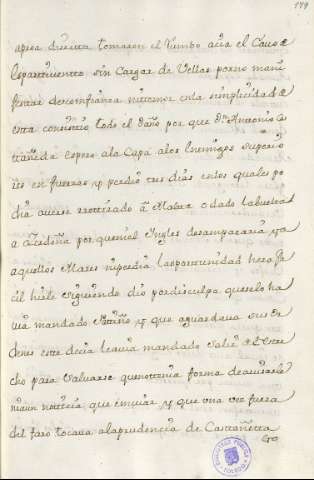 179
apriea divicita tomaron el Rumbo acia el Cauo de
Espartiuentto sin Cargar de Vellas por no mani
festar desconfianza notemor en la simplicidad de
esta consistio todo el daño por que Dn Antonio Cas
tañeda espero a la Capa a los Enemigos superio
res en fuerzas y perdio tres dias en los quales po
dia averse retirado a Malta o dado la buelta
a Cerdeña por que ni el Yngles desampararia
aquellos Mares ni perdia la oportunidad hera fa
cil siguiendo dio por disculpa que selo ha
uia mandado Patiño y que aguardaua sus or
denes este decia leauia mandado salir del estre
cho para saluarse que no tenia forma de auisarle
ni aun noticia que embiar y que una vez fuera
del faro tocaua a la prudencia de Castañetta
BIBLIOTECA PUBLICA
TOLEDO